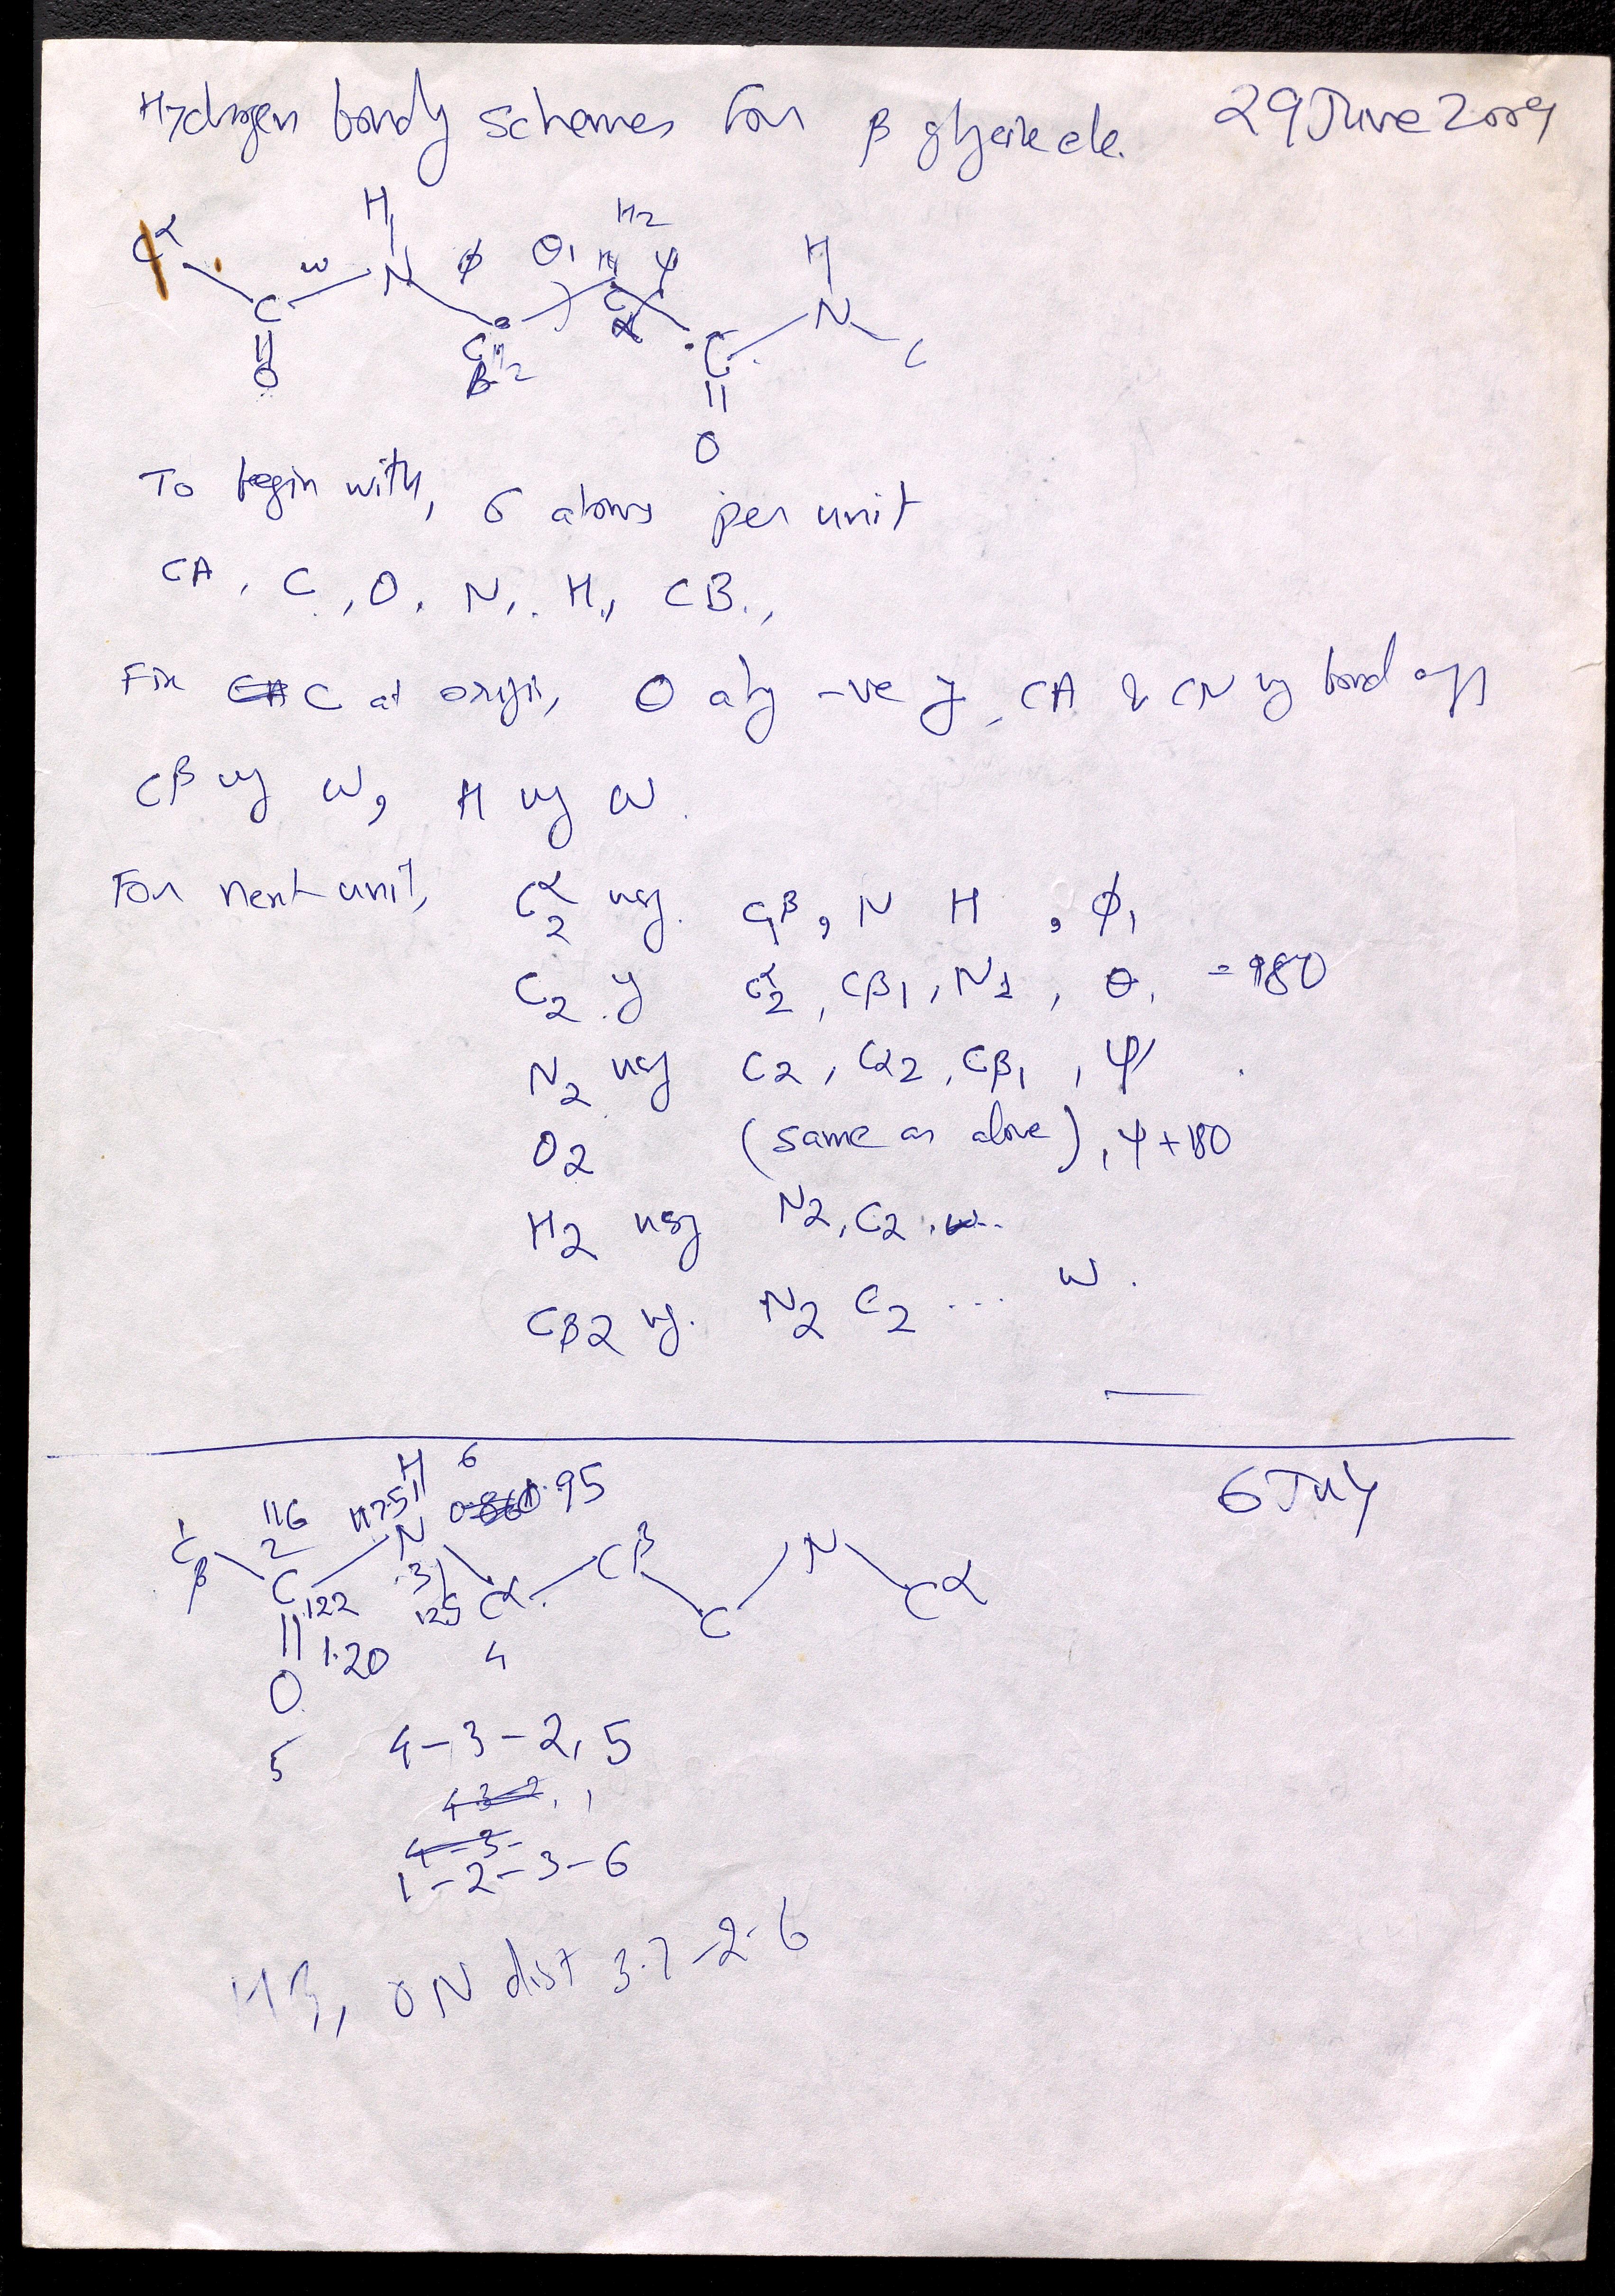 Hydrogen bondy schemes for β glycine etc. 29 June 2009
H H2
Cα ω N φ θ1 H ψ H
C C α N
O C H2 C C
β O
To begin with, 6 atoms per unit
CA, C, O, N, H, CB,
Fix C at origin, O alg -ve y, CA & CN ug bond ags
Cβ ug ω, H ug ω.
For next unit, Cα2 usg. C1β, N H, φ1
C2 y Cα2, Cβ1, N1, θ, = 180
N2 usg C2, Cα2, Cβ1, ψ
O2 (same as above), ψ+180
H2 usg N2, C2 . ω..
Cβ2 ug. N2 C2 ... ω.
H 6 6 July
1 116 117.5 0.95
Cβ 2 N Cβ N
C 122 3 125 Cα C Cα
1.20 4
O
5 4-3-2, 5
4 3 2, 1
4-3-
1-2-3-6
HB, ON dist 3.2-2.6